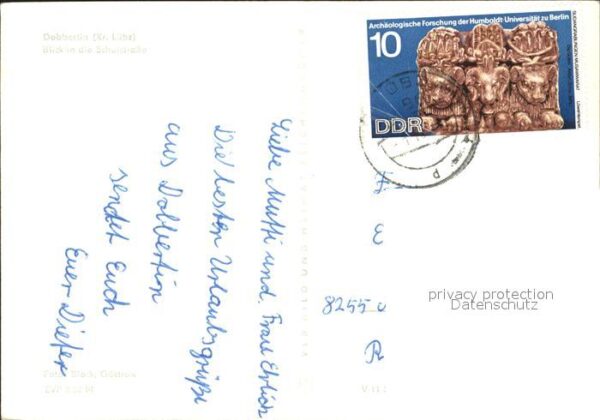 Dobbertin (Kr. Lübz)
Blick in die Schulstraße
Archäologische Forschung der Humboldt-Universität zu Berlin
10
DDR
Liebe Mutti und Frau Ehrlich
Die besten Urlaubsgrüße
aus Dobbertin
sendet Euch
Euer Dieter
8255
privacy protection
Datenschutz
Foto: Güstrow
V 11